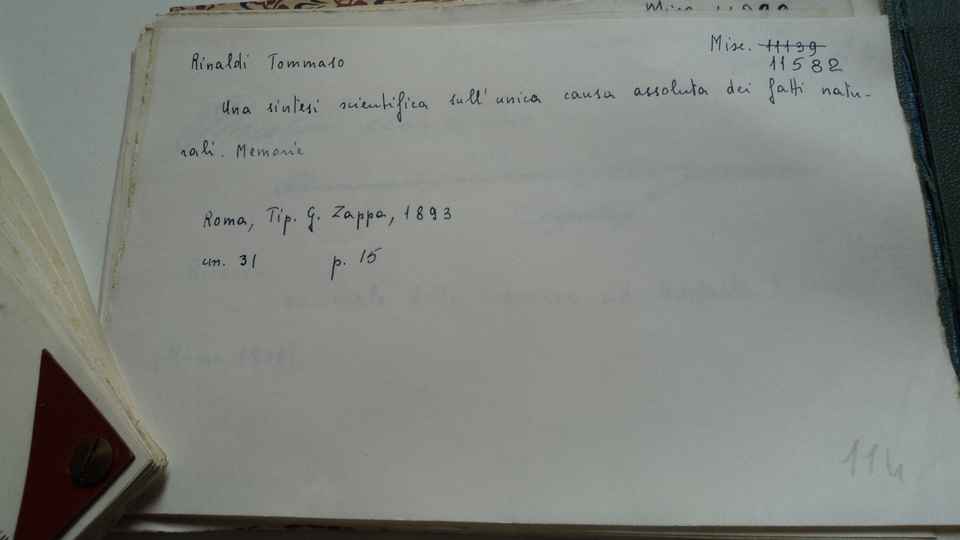 Rinaldi Tommaso
Misc. 11139
11582
Una sintesi scientifica sull'unica causa assoluta dei fatti natu-
rali. Memorie
Roma, Tip. G. Zappa, 1893
cm. 31 p. 15
114